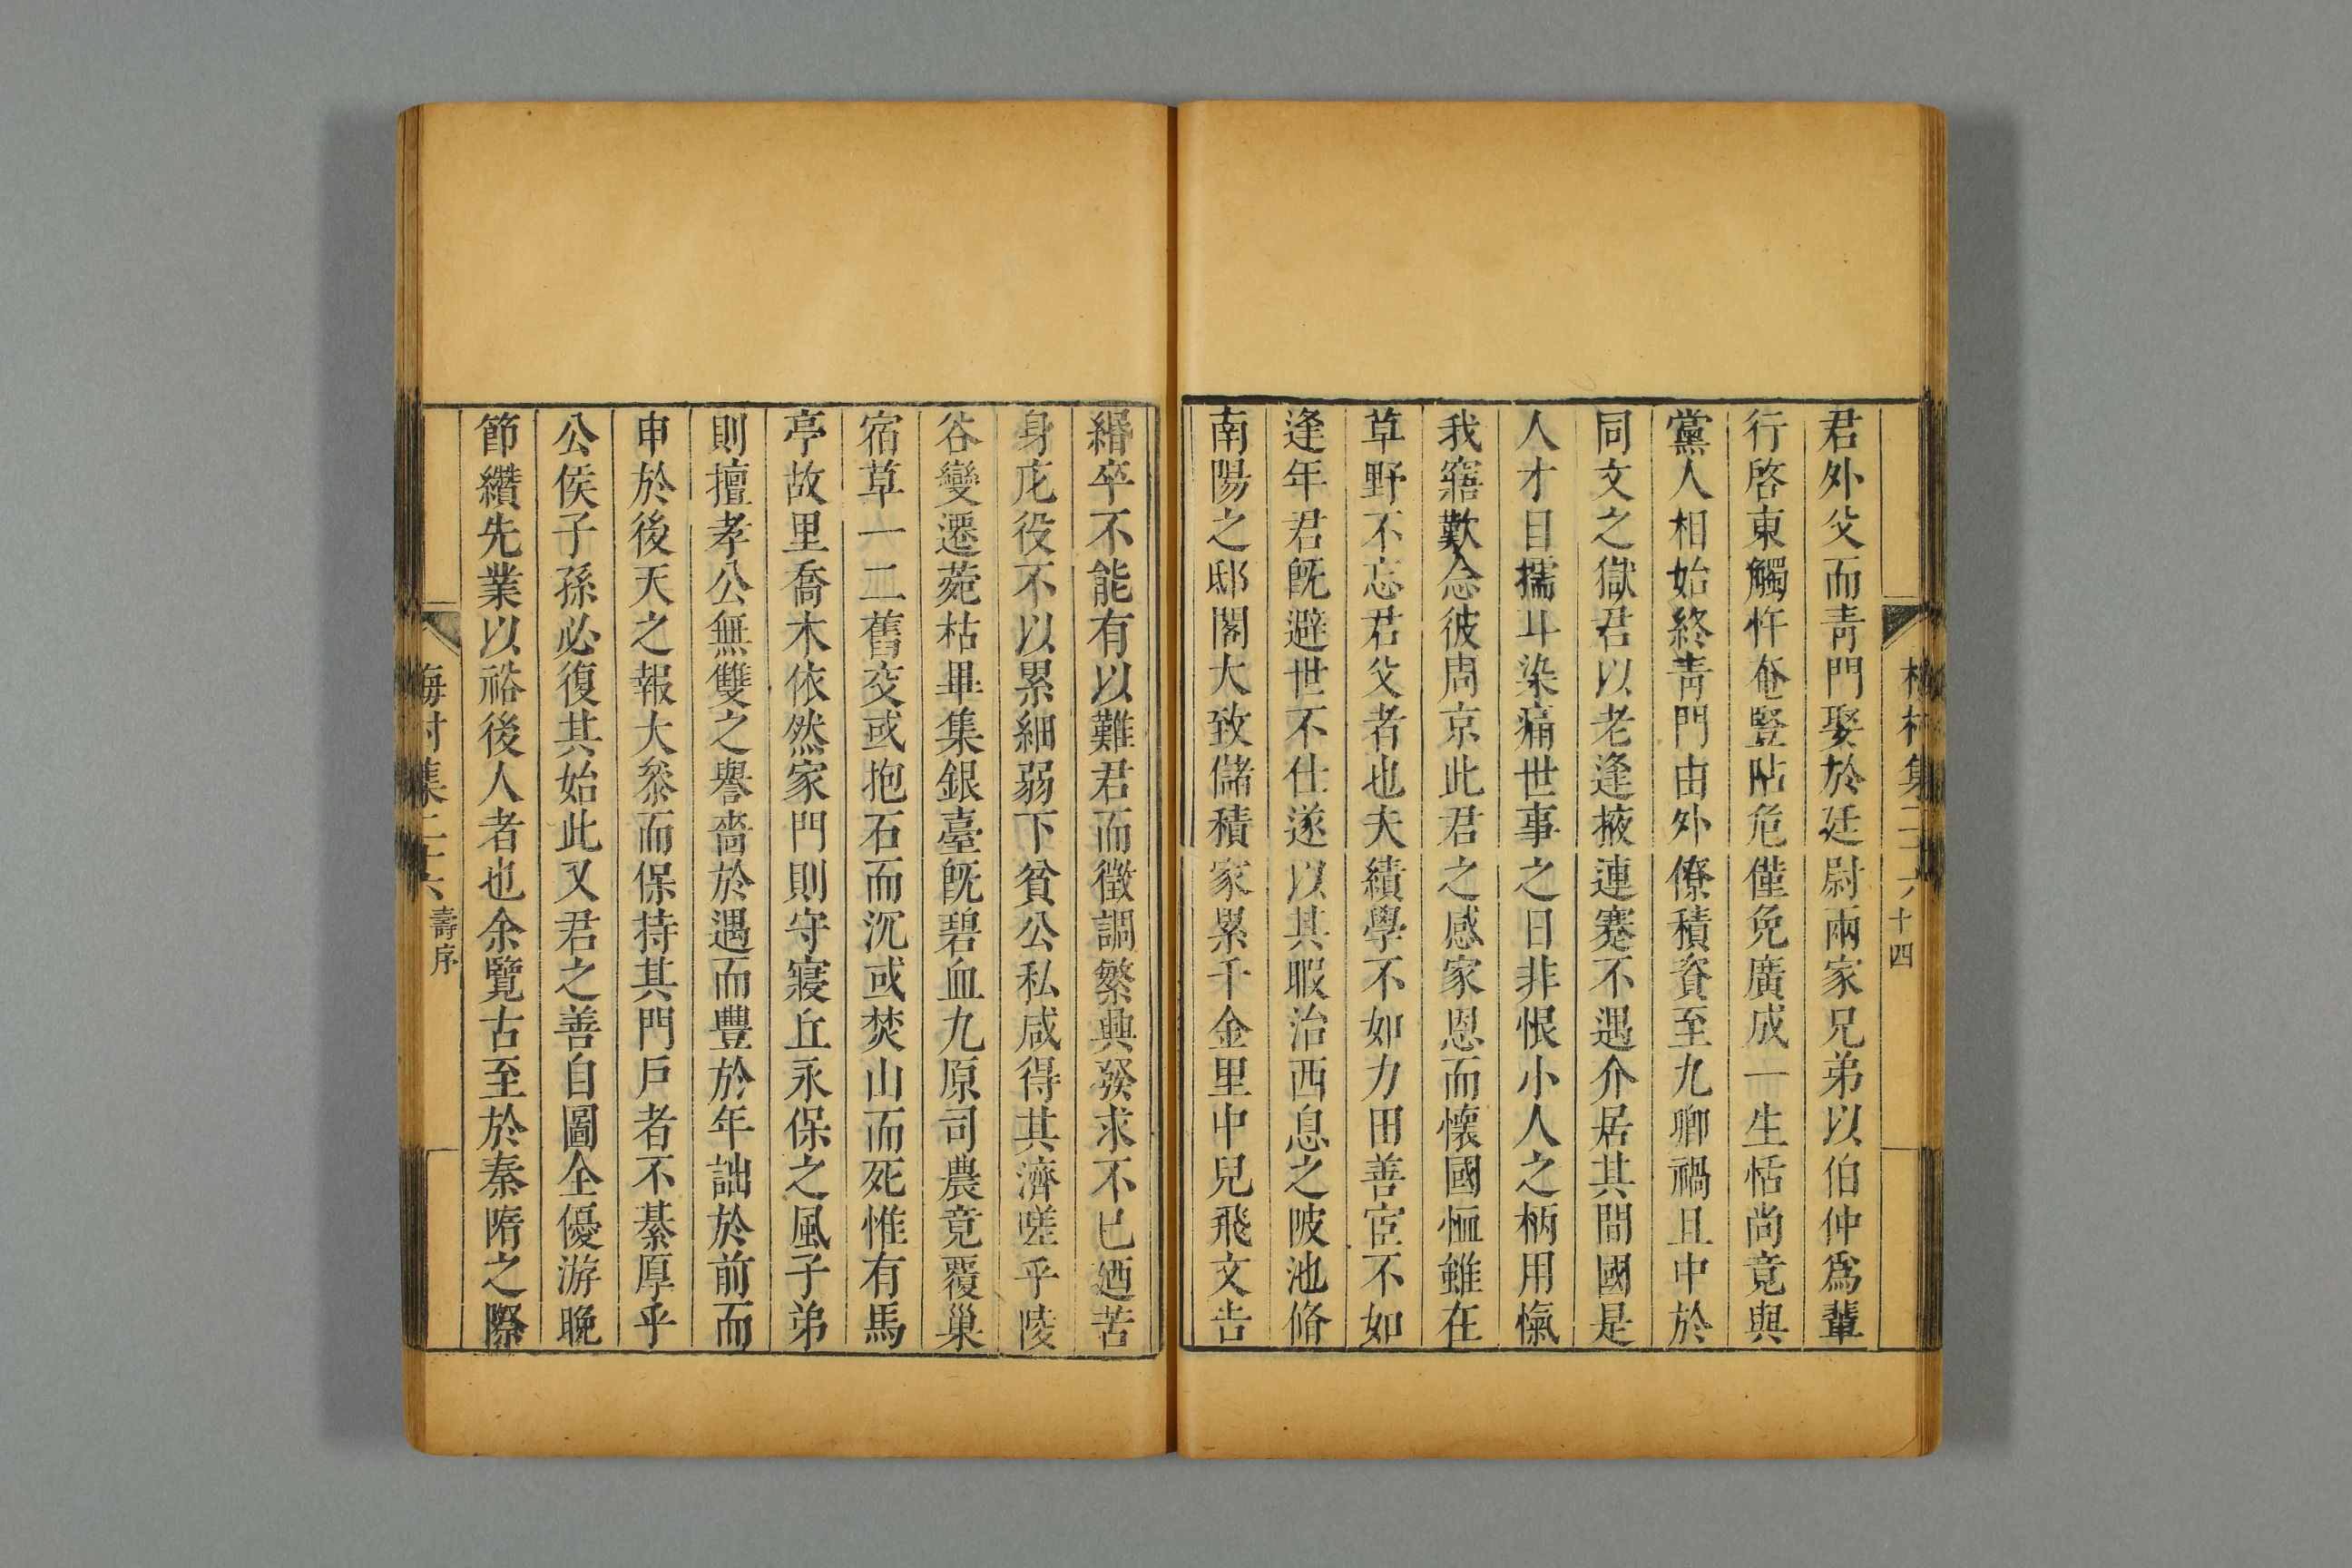 君外父而靑門娶於廷尉兩家兄弟以伯仲爲輩
行啓東觸忤奄豎阽危僅免廣成一生恬尚竟與
黨人相始終靑門由外僚積資至九卿禍且中於
同文之獄君以老逢掖連蹇不遇介居其間國是
人才目擩耳染痛世事之日非恨小人之柄用愾
我寤歎念彼周京此君之感家恩而懷國恤雖在
草野不忘君父者也夫績學不如力田善宦不如
逢年君旣避世不仕遂以其暇治西息之陂池脩
南陽之邸閣大致儲積家累千金里中兒飛文告
緡卒不能有以難君而徵調繁興發求不已廼苦
身庀役不以累細弱下貧公私咸得其濟嗟乎陵
谷變遷菀枯畢集銀臺旣碧血九原司農竟覆巢
宿草一二舊交或抱石而沉或焚山而死惟有馬
亭故里喬木依然家門則守寢丘永保之風子弟
則擅孝公無雙之譽嗇於遇而豐於年詘於前而
申於後天之報大叅而保持其門戶者不綦厚乎
公侯子孫必復其始此又君之善自圖全優游晚
節纘先業以裕後人者也余覽古至於秦隋之際
梅村集二十六 十四
梅村集二十六 壽序